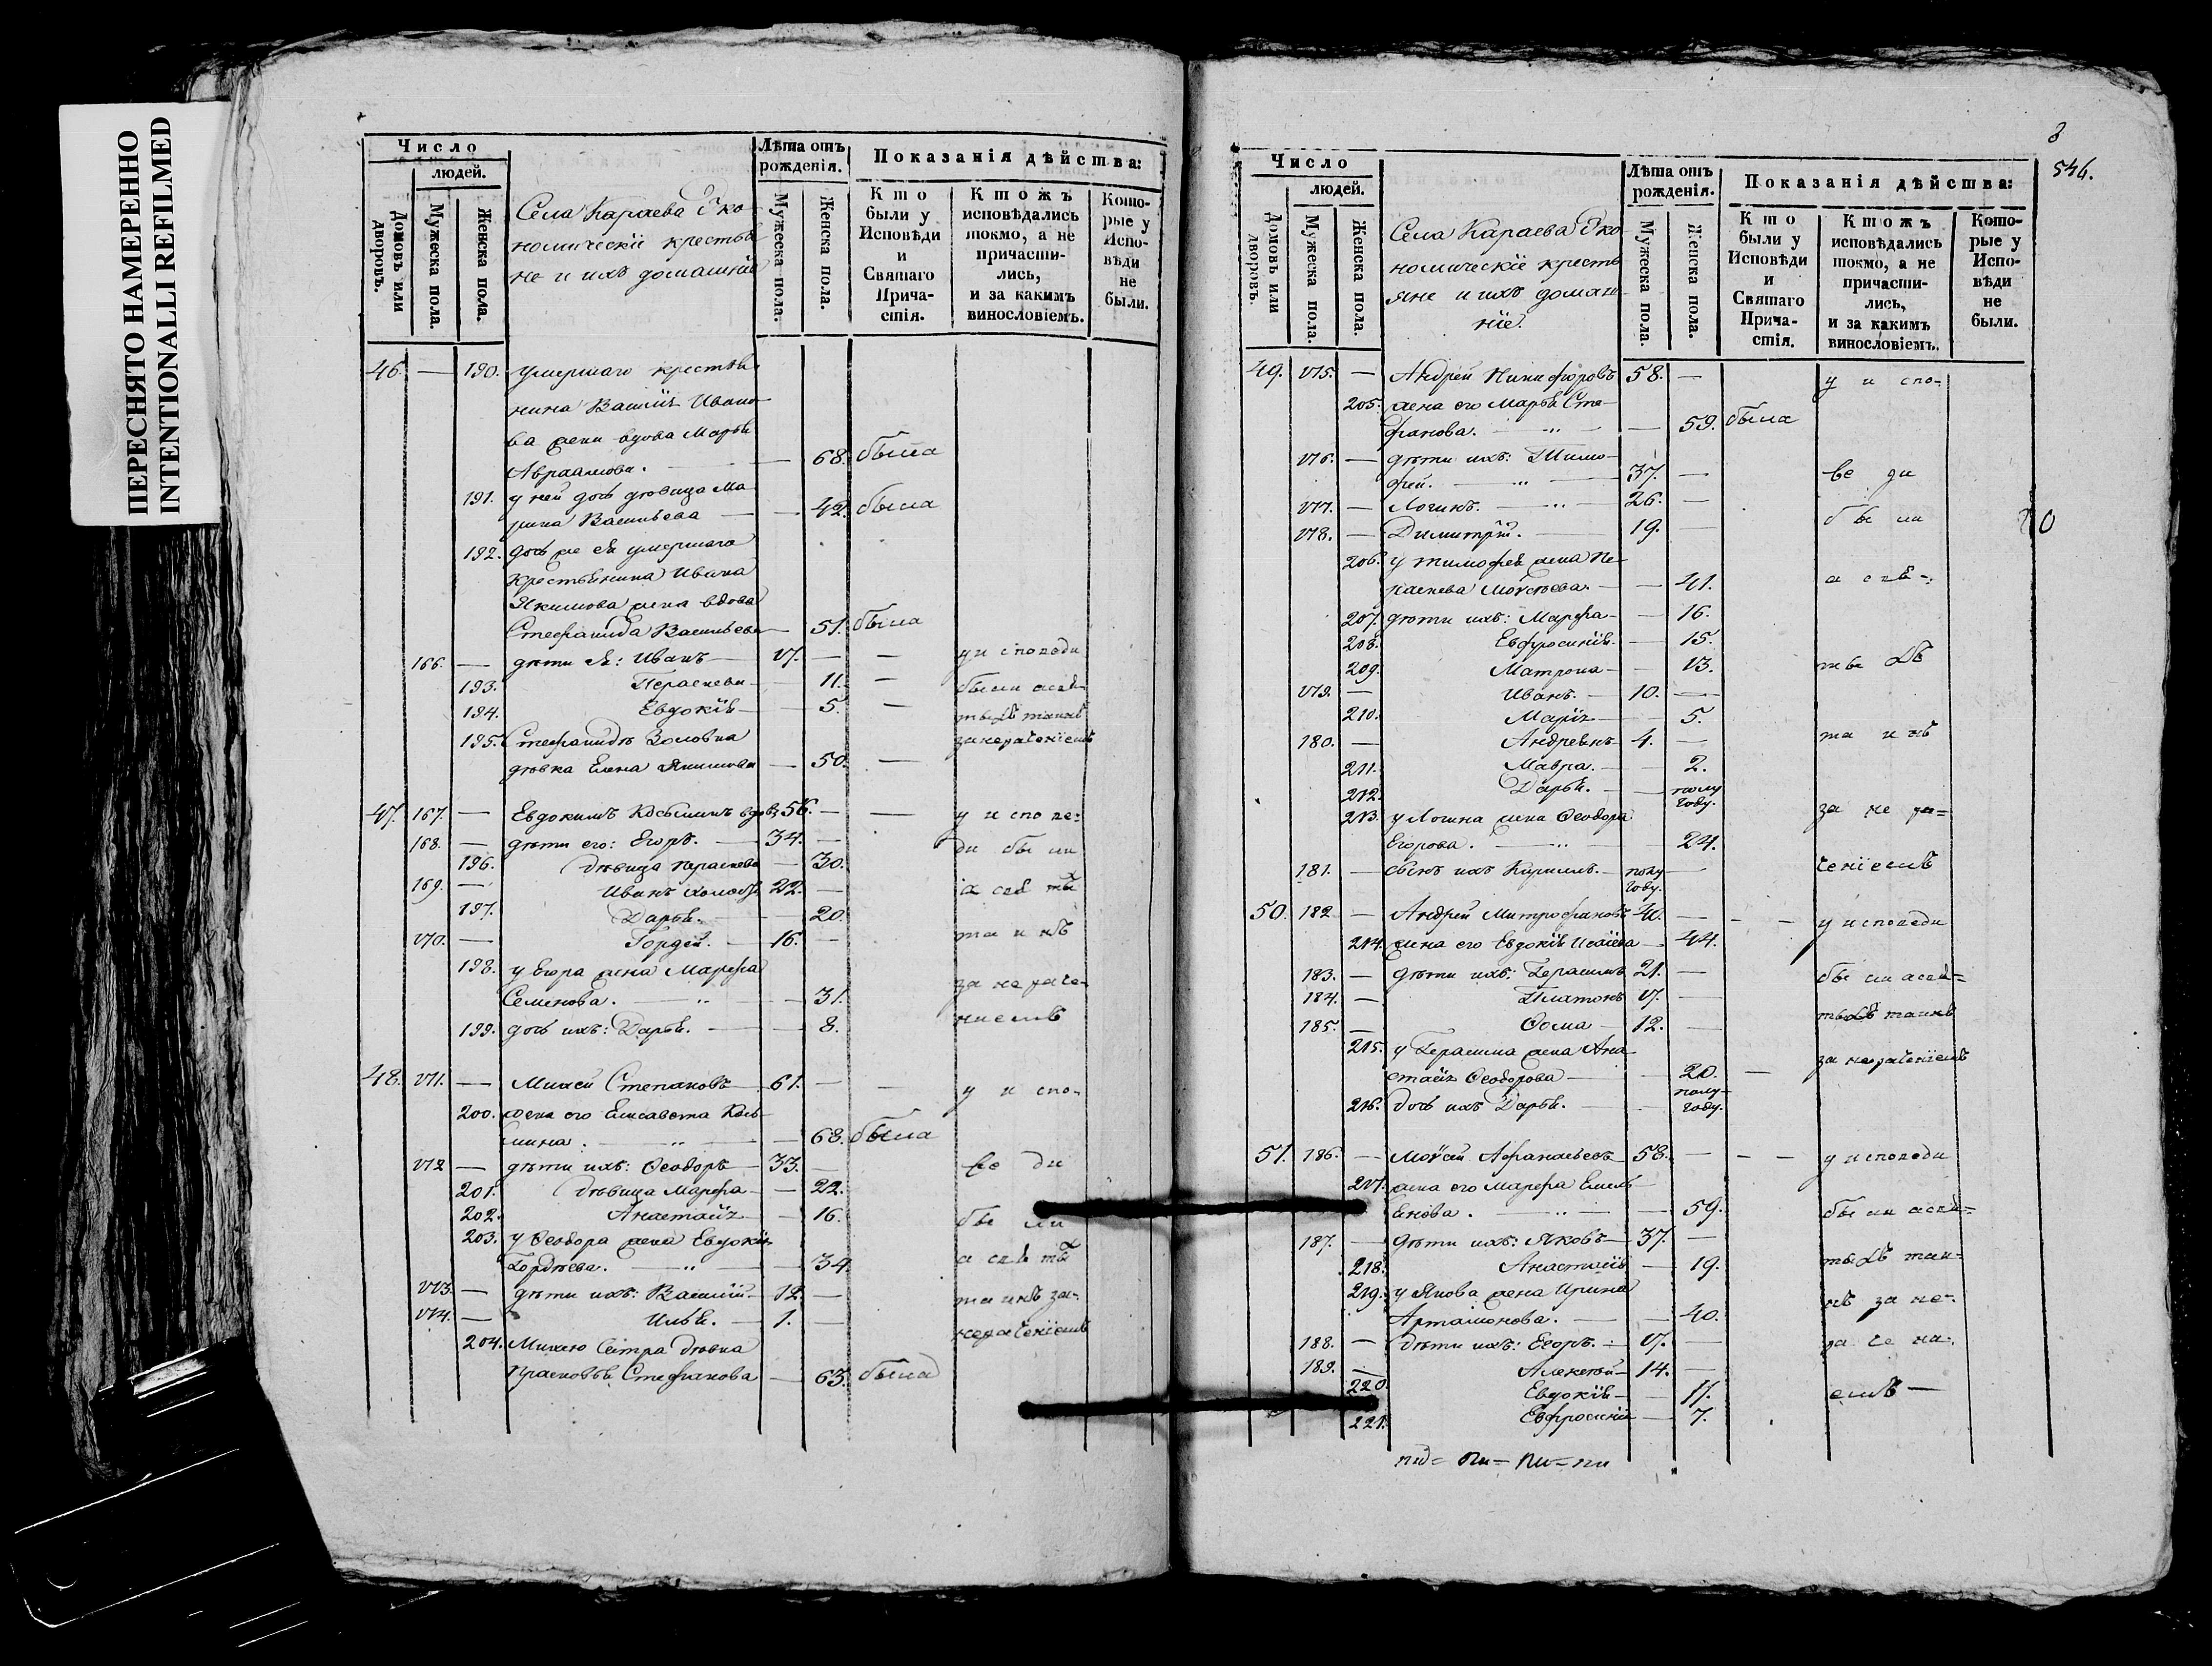 ПЕРЕСНЯТО НАМЕРЕННО
INTENTIONALLI REFILMED
Число
людей.
Домовъ или дворовъ.
Мужеска пола.
Женска пола.
Села Караева Эко-
номическїе крестья
не и ихъ домашнїе
Лѣта отъ рожденїя.
Мужеска пола.
Женска пола.
Показанїя дѣйства:
Кто были у Исповѣди и Святаго Прича-стїя.
Ктожъ исповѣдались токмо, а не причасти-лись, и за какимъ винословїемъ.
Кото-рые у Испо-вѣди не были.
46. — 190. умершаго крестья
нина Василїя Ивано
ва жена вдова Марья
Авраамова. — 68. была
191. у ней дочь дѣвица Ма
рина Васильева — 42. была
192. дочь же ея умершаго
крестьянина Ивана
Якимова жена вдова
Стефанида Васильева — 51. была
166. — дѣти ея: Иванъ — 17. — — у исповеди
193. Параскева — 11. — были а свя
194. Евдокїя — 5. — тыхъ таинъ
195. Стефаниды Золовка за нераченїемъ
дѣвка Елена Якимова — 50. —
47. 167. — Евдокимъ Косминъ вдовъ 56. — — у испове-
168. — дѣти его: Егоръ. — 34. — ди были
196. дѣвица Параскева — 30.
169. — Иванъ холостъ 22. — а свя тыхъ
197. Дарья. — 20.
170. — Гордей. — 16. — таинъ
198. у Егора жена Марфа
Семенова. — " — 31. за нераче-
199. дочь ихъ: Дарья. — 8. ниемъ
48. 171. — Михей Степановъ — 61. — — у испо-
200. жена его Елисавета Кось
мина. — " — 68. была
172 — дѣти ихъ: Ѳеодоръ — 33. — ве ди
201. дѣвица Марфа — 22.
202. Анастасїя — 16. бы ли
203. у Ѳеодора жена Евдокїя
Гордѣева. — " — 34. а свя тыхъ
173. — дѣти ихъ: Василїй — 12. — таинъ за-
174. — Илья. — 1. — нераченїемъ
204. Михею сестра дѣвка
Прасковья Стефанова — 63. была
3
546.
Число
людей.
Домовъ или дворовъ.
Мужеска пола.
Женска пола.
Села Караева Эко-
номическїе кресть
яне и ихъ домаш
нїе.
Лѣта отъ рожденїя.
Мужеска пола.
Женска пола.
Показанїя дѣйства:
Кто были у Исповѣди и Святаго Прича-стїя.
Ктожъ исповѣдались токмо, а не причасти-лись, и за какимъ винословїемъ.
Кото-рые у Испо-вѣди не были.
49. 175. — Андрей Никифоровъ 58. — у испо-
205. жена его Марья Сте-
фанова. — " — 59. была
176. — дѣти ихъ: Тимо-
фей. — " — 37. — ве ди
177. — Логинъ. — " — 26. —
178. — Димитрїй. — 19. — бы ли
206. у Тимофея жена Па-
раскева Моѵсеева. — 41. а свя-
207. дѣти ихъ: Марфа — 16.
208. Евфросинїя. — 15.
209. Матрона — 13. ты хъ
179. — Иванъ. — 10. —
210. Марїя — 5.
180. — Андреянъ 4. — та инъ
211. Мавра. — 2.
212. Дарья. — полу году.
213. у Логина жена Ѳеодора за не ра-
Егорова. — " — 24.
181. — сынъ ихъ Кирилъ. — полу году. — ченїемъ
50. 182 — Андрей Митрофановъ 40. — — у исповеди
214. жена его Евдокїя Исаїева — 44.
183. — дѣти ихъ: Герасимъ 21. — были а свя-
184. — Платонъ 17. —
185. — Ѳома — 12. — тыхъ таинъ
215. у Герасима жена Ана
стасїя Ѳеодорова — 20. — за нераченїемъ
216. дочь ихъ Дарья. — полу-году.
51. 186. — Моѵсей Афанасьевъ — 58. — — у исповеди
217. жена его Марфа Емель
янова. — " — 59. были а свя-
187. — дѣти ихъ: Яковъ — 37. —
218. Анастасїя — 19. тыхъ таи-
219. у Якова жена Ирина
Артамонова. — 40. нъ за не-
188. — дѣти ихъ: Егоръ. — 17. — ра че ни-
189. — Алексѣй — 14. —
220. Евдокїя — 17. емъ —
221. Евфросинїя — 7.